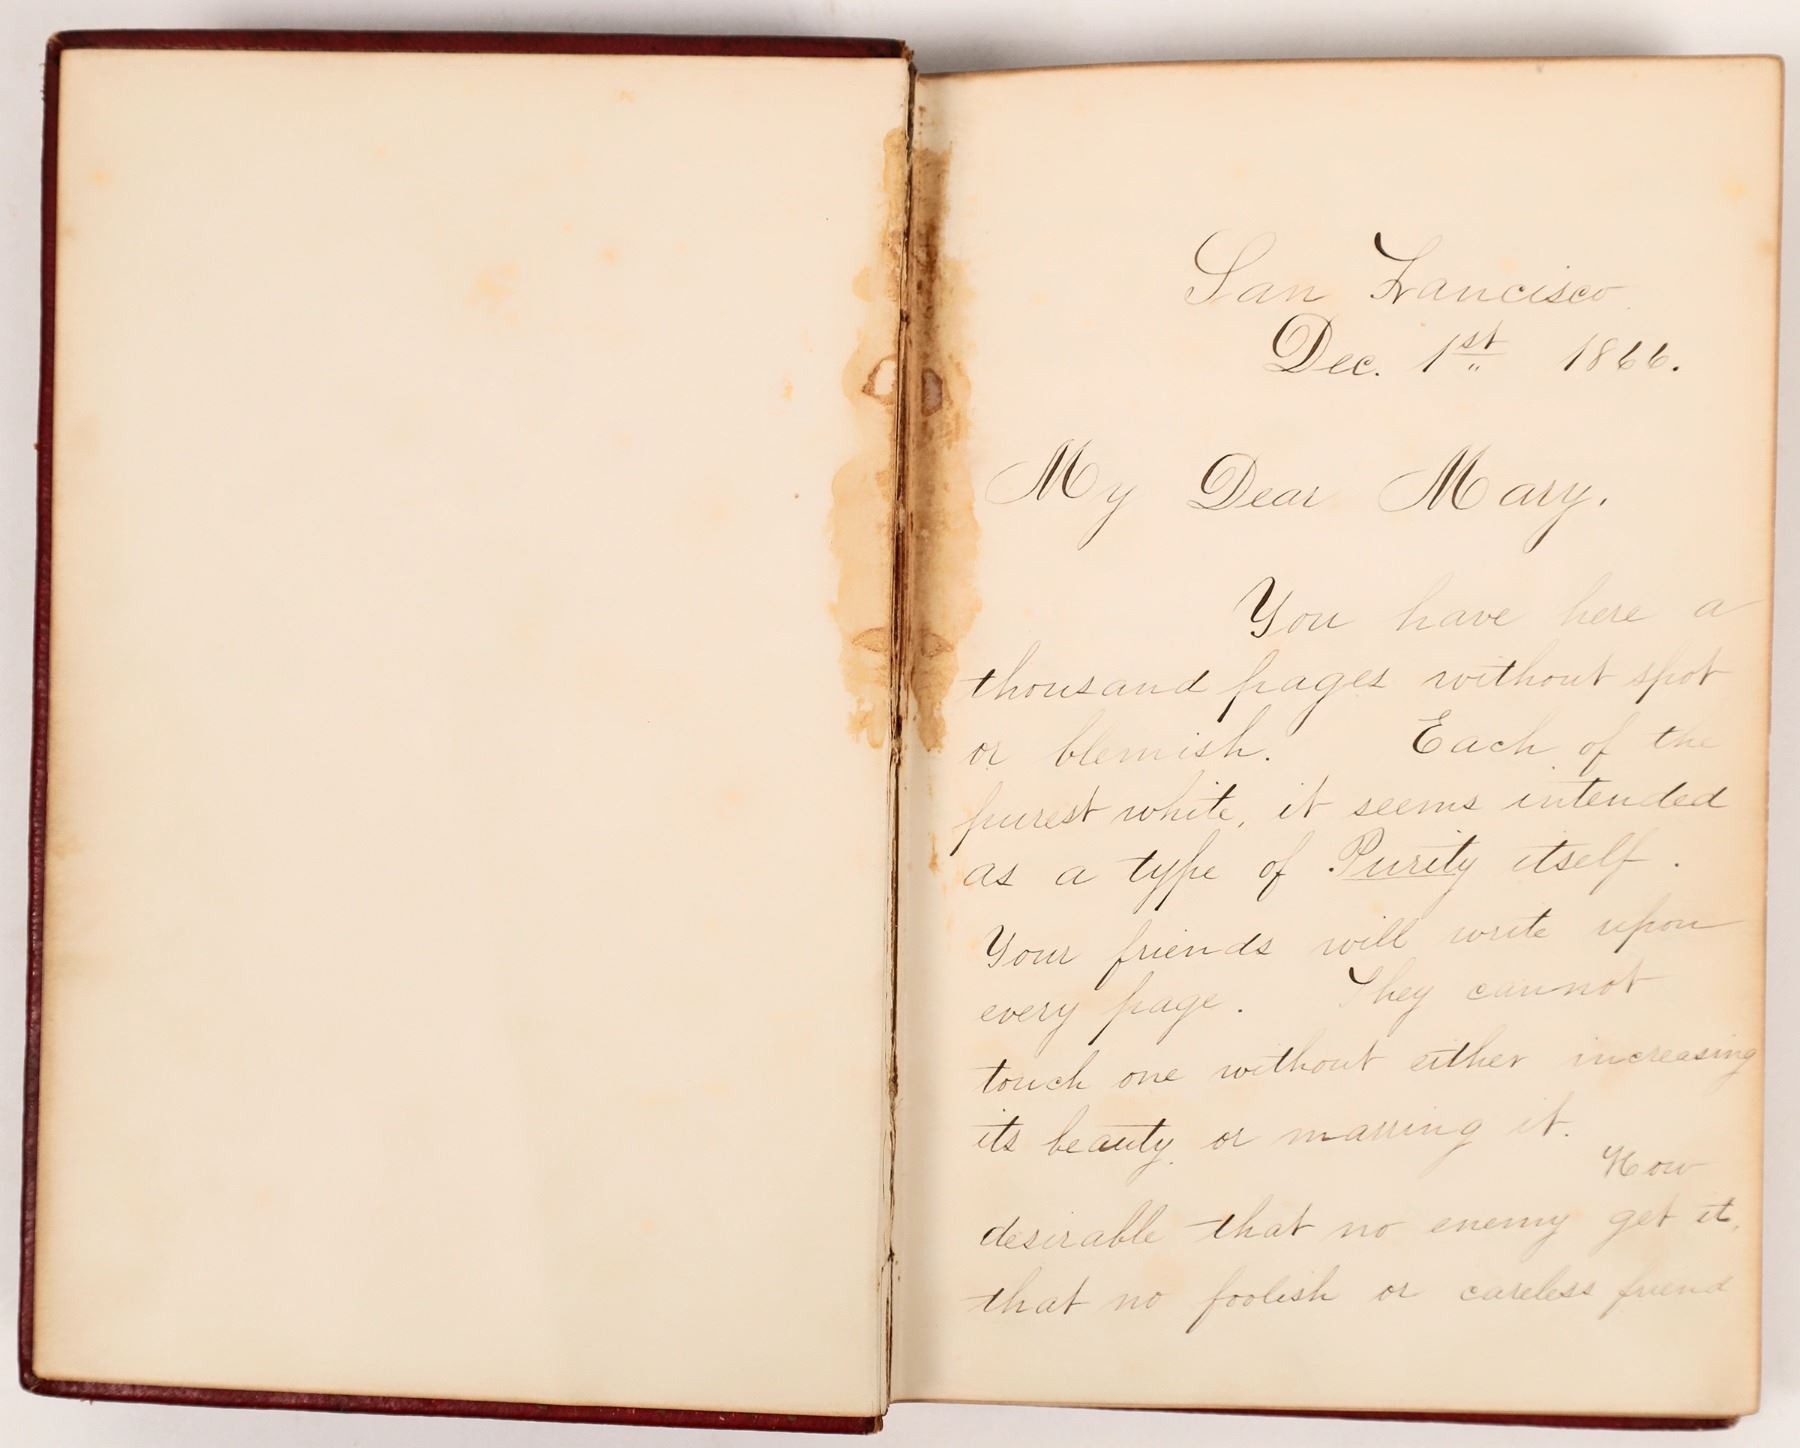 San Francisco
Dec. 1st 1866.
My Dear Mary.
You have here a
thousand pages without spot
or blemish. Each of the
purest white, it seems intended
as a type of Purity itself.
Your friends will write upon
every page. They cannot
touch one without either increasing
its beauty or marring it.
How
desirable that no enemy get it,
that no foolish or careless friend